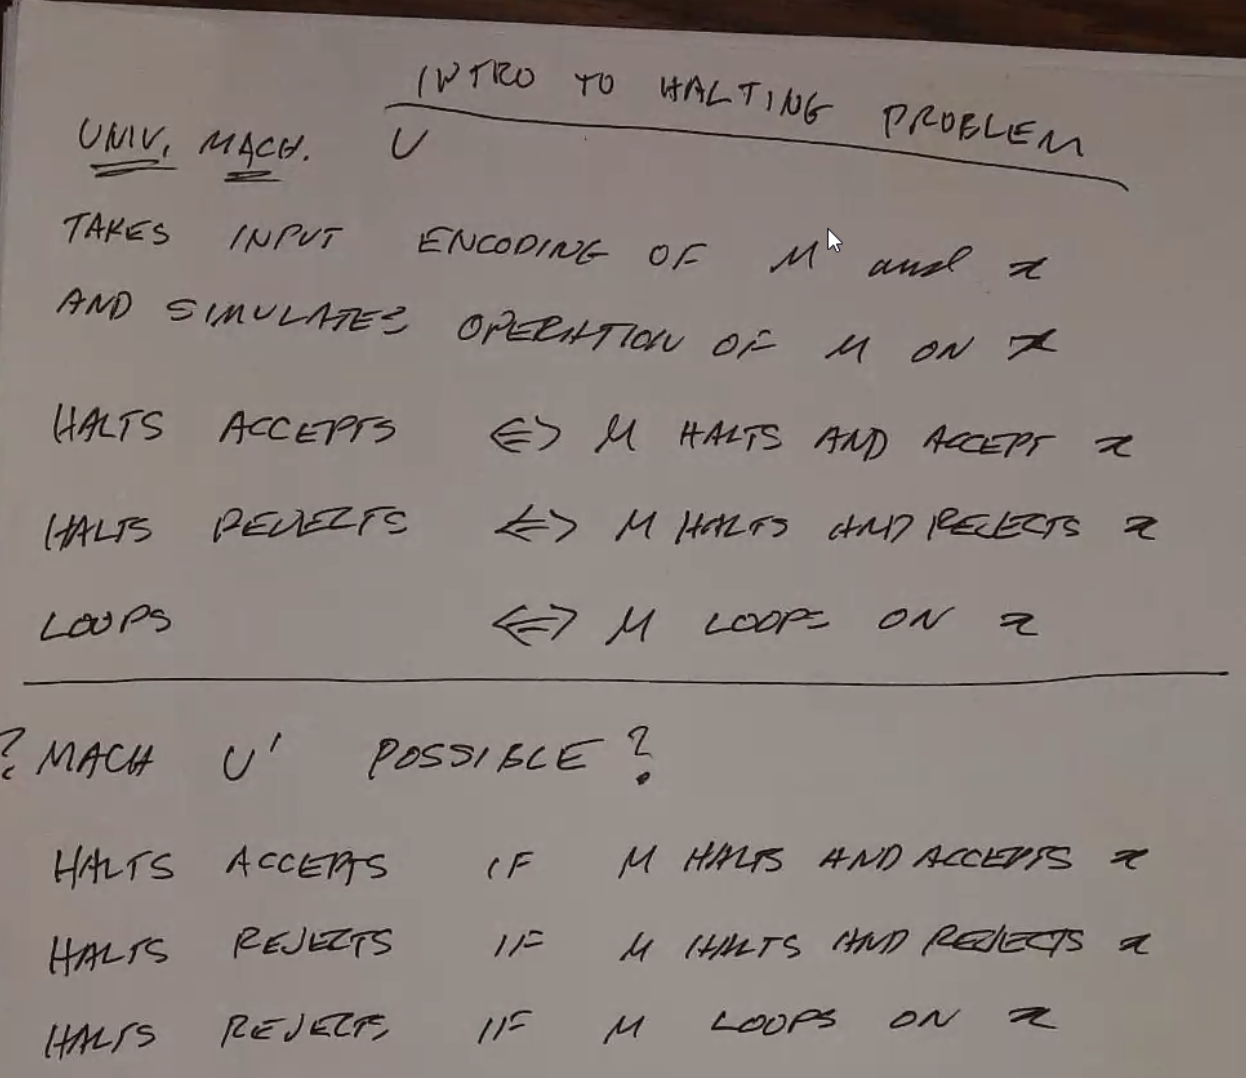 INTRO TO HALTING PROBLEM
UNIV. MACH. U
TAKES INPUT ENCODING OF M and x
AND SIMULATES OPERATION OF M ON x
HALTS ACCEPTS <=> M HALTS AND ACCEPT x
HALTS REJECTS <=> M HALTS AND REJECTS x
LOOPS <=> M LOOPS ON x
? MACH U' POSSIBLE?
HALTS ACCEPTS IF M HALTS AND ACCEPTS x
HALTS REJECTS IF M HALTS AND REJECTS x
HALTS REJECTS IF M LOOPS ON x